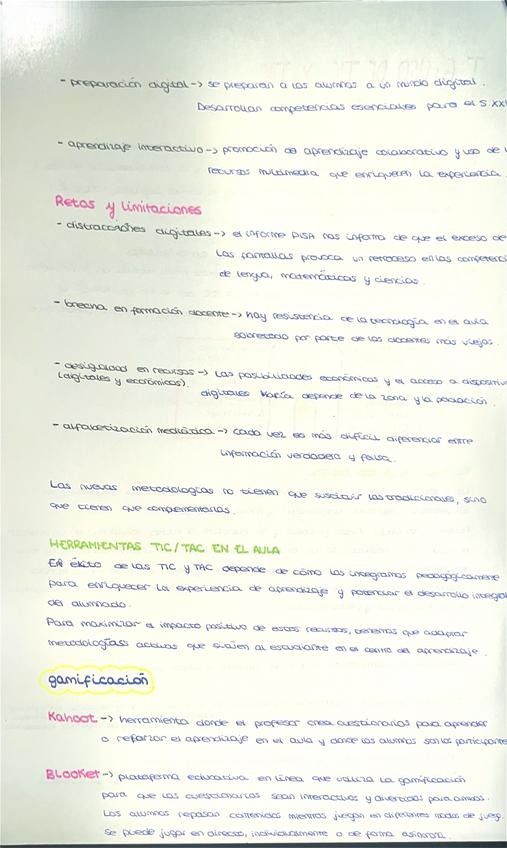 - preparación digital -> se preparan a los alumnos a un mundo digital.
Desarrollan competencias esenciales para el S.XXI
- aprendizaje interactivo -> promoción del aprendizaje colaborativo y uso de
recursos multimedia que enriquecen la experiencia.
Retos y limitaciones
- distracciones digitales -> el informe PISA nos informa de que el exceso de
las pantallas provoca un retroceso en las competenci
de lengua, matemáticas y ciencias.
- brecha en formación docente -> hay resistencia de la tecnología en el aula
sobretodo por parte de los docentes más viejos.
- desigualdad en recursos -> Las posibilidades económicas y el acceso a dispositiv
(digitales y económicos). digitales varía depende de la zona y la población.
- alfabetización mediática -> cada vez es más difícil diferenciar entre
información verdadera y falsa.
Las nuevas metodologías no tienen que sustituir las tradicionales, sino
que tienen que complementarlas.
HERRAMIENTAS TIC/TAC EN EL AULA
El éxito de las TIC y TAC depende de cómo las integramos pedagógicamente
para enriquecer la experiencia de aprendizaje y potenciar el desarrollo integral
del alumnado.
Para maximizar el impacto positivo de estos recursos, tenemos que adaptar
metodologías activas que sitúen al estudiante en el centro del aprendizaje.
gamificación
Kahoot -> herramienta donde el profesor crea cuestionarios para aprender
o reforzar el aprendizaje en el aula y donde los alumnos son los participante
Blooket -> plataforma educativa en línea que utiliza la gamificación
para que los cuestionarios sean interactivos y divertidos para ambos.
Los alumnos repasan contenidos mientras juegan en diferentes modos de juego.
Se puede jugar en directo, individualmente o de forma asíncrona.